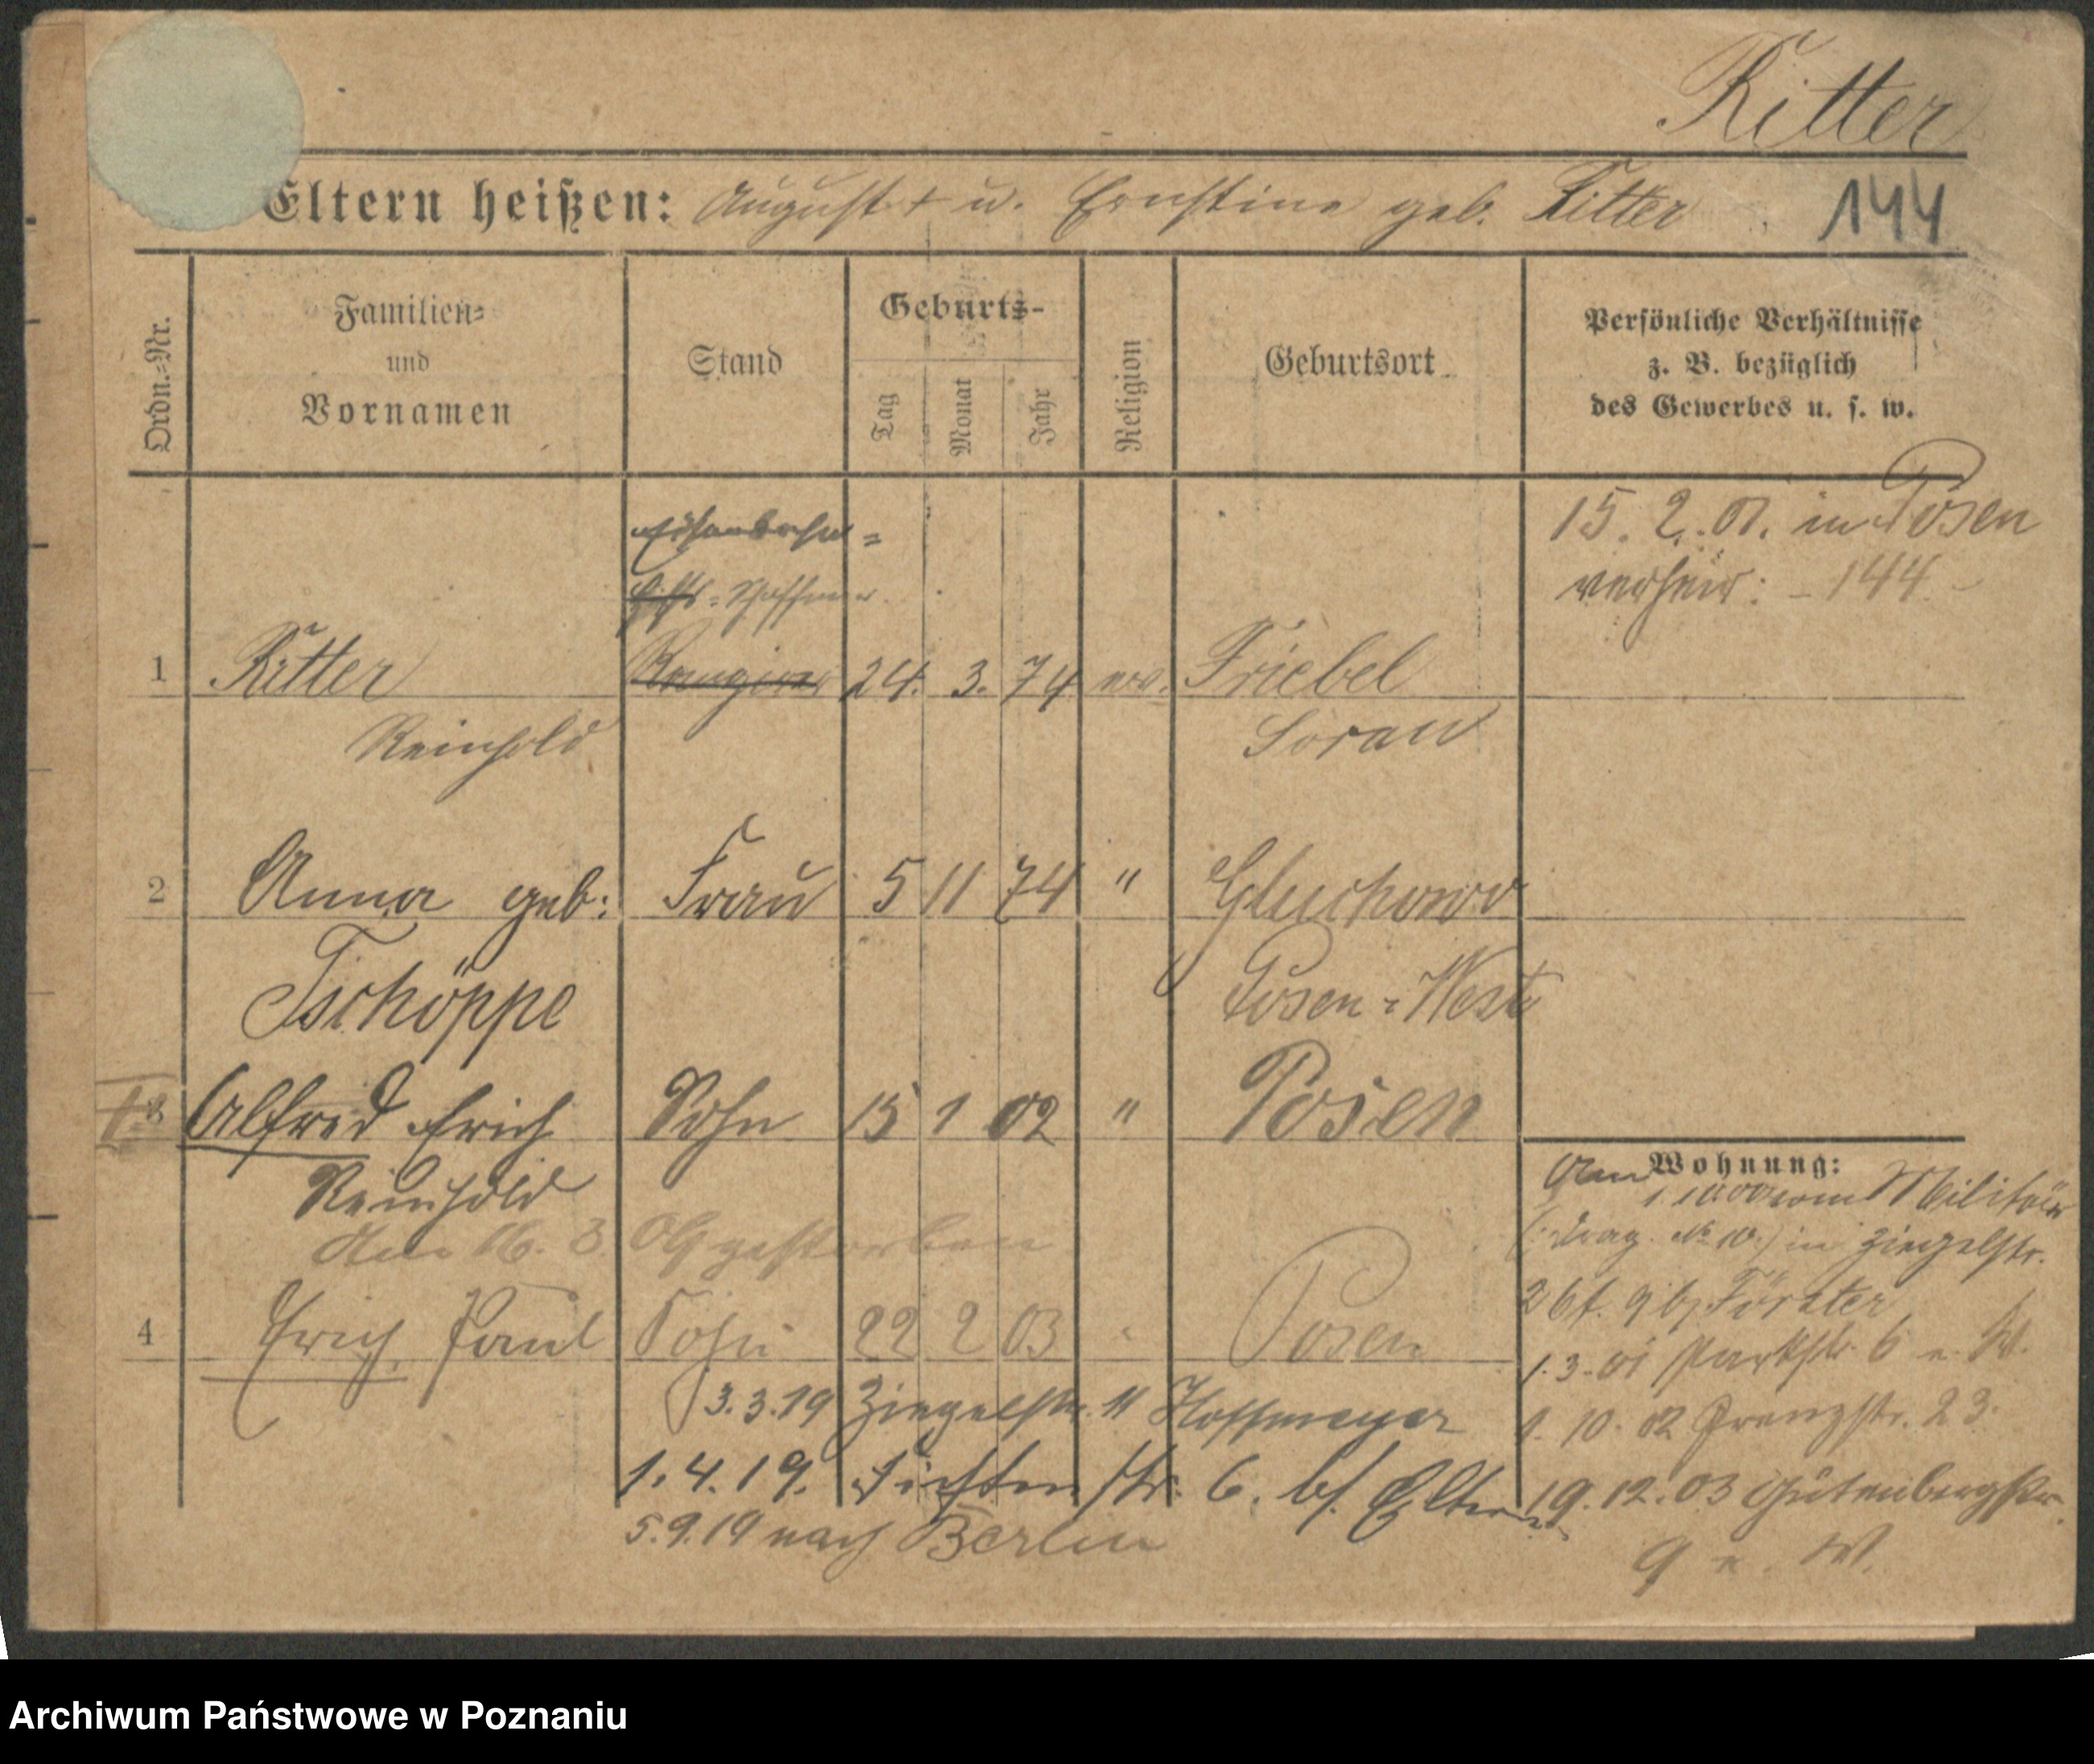 Ritter
Eltern heißen: August + u. Ernstine geb. Ritter 144
Ordn.=Nr.
Familien=
und
Vornamen
Stand
Geburts-
Tag
Monat
Jahr
Religion
Geburtsort
Persönliche Verhältnisse
z. B. bezüglich
des Gewerbes u. s. w.
Eisenbahn=
Hilfs=Schaffner
15. 2. 01. in Posen
verheir: - 144 -
1 Ritter Rangierer 24. 3. 74 ev. Friebel
Reinhold Sorau
2 Anna geb: Frau 5 11 74 " Gluchowo
Tschöppe Posen=West
† 3 Alfred Erich Sohn 15 1 02 " Posen
Reinhold
Am 16. 3. 09 gestorben
4 Erich Paul Sohn 22 2 03 Posen
3.3.19 Ziegelstr. 11 Hoffmeyer
1.4.19. Fichtenstr. 6. bf. Eltern
5.9.19 nach Berlin
Wohnung:
Am 1. vom Militär
(Drag. No 10.) in Ziegelstr.
Förster
1.3.01 Parkstr. 6 n. W.
1. 10. 02 Grenzstr. 23.
19. 12. 03 Gutenbergstr.
9 n. W.
Archiwum Państwowe w Poznaniu